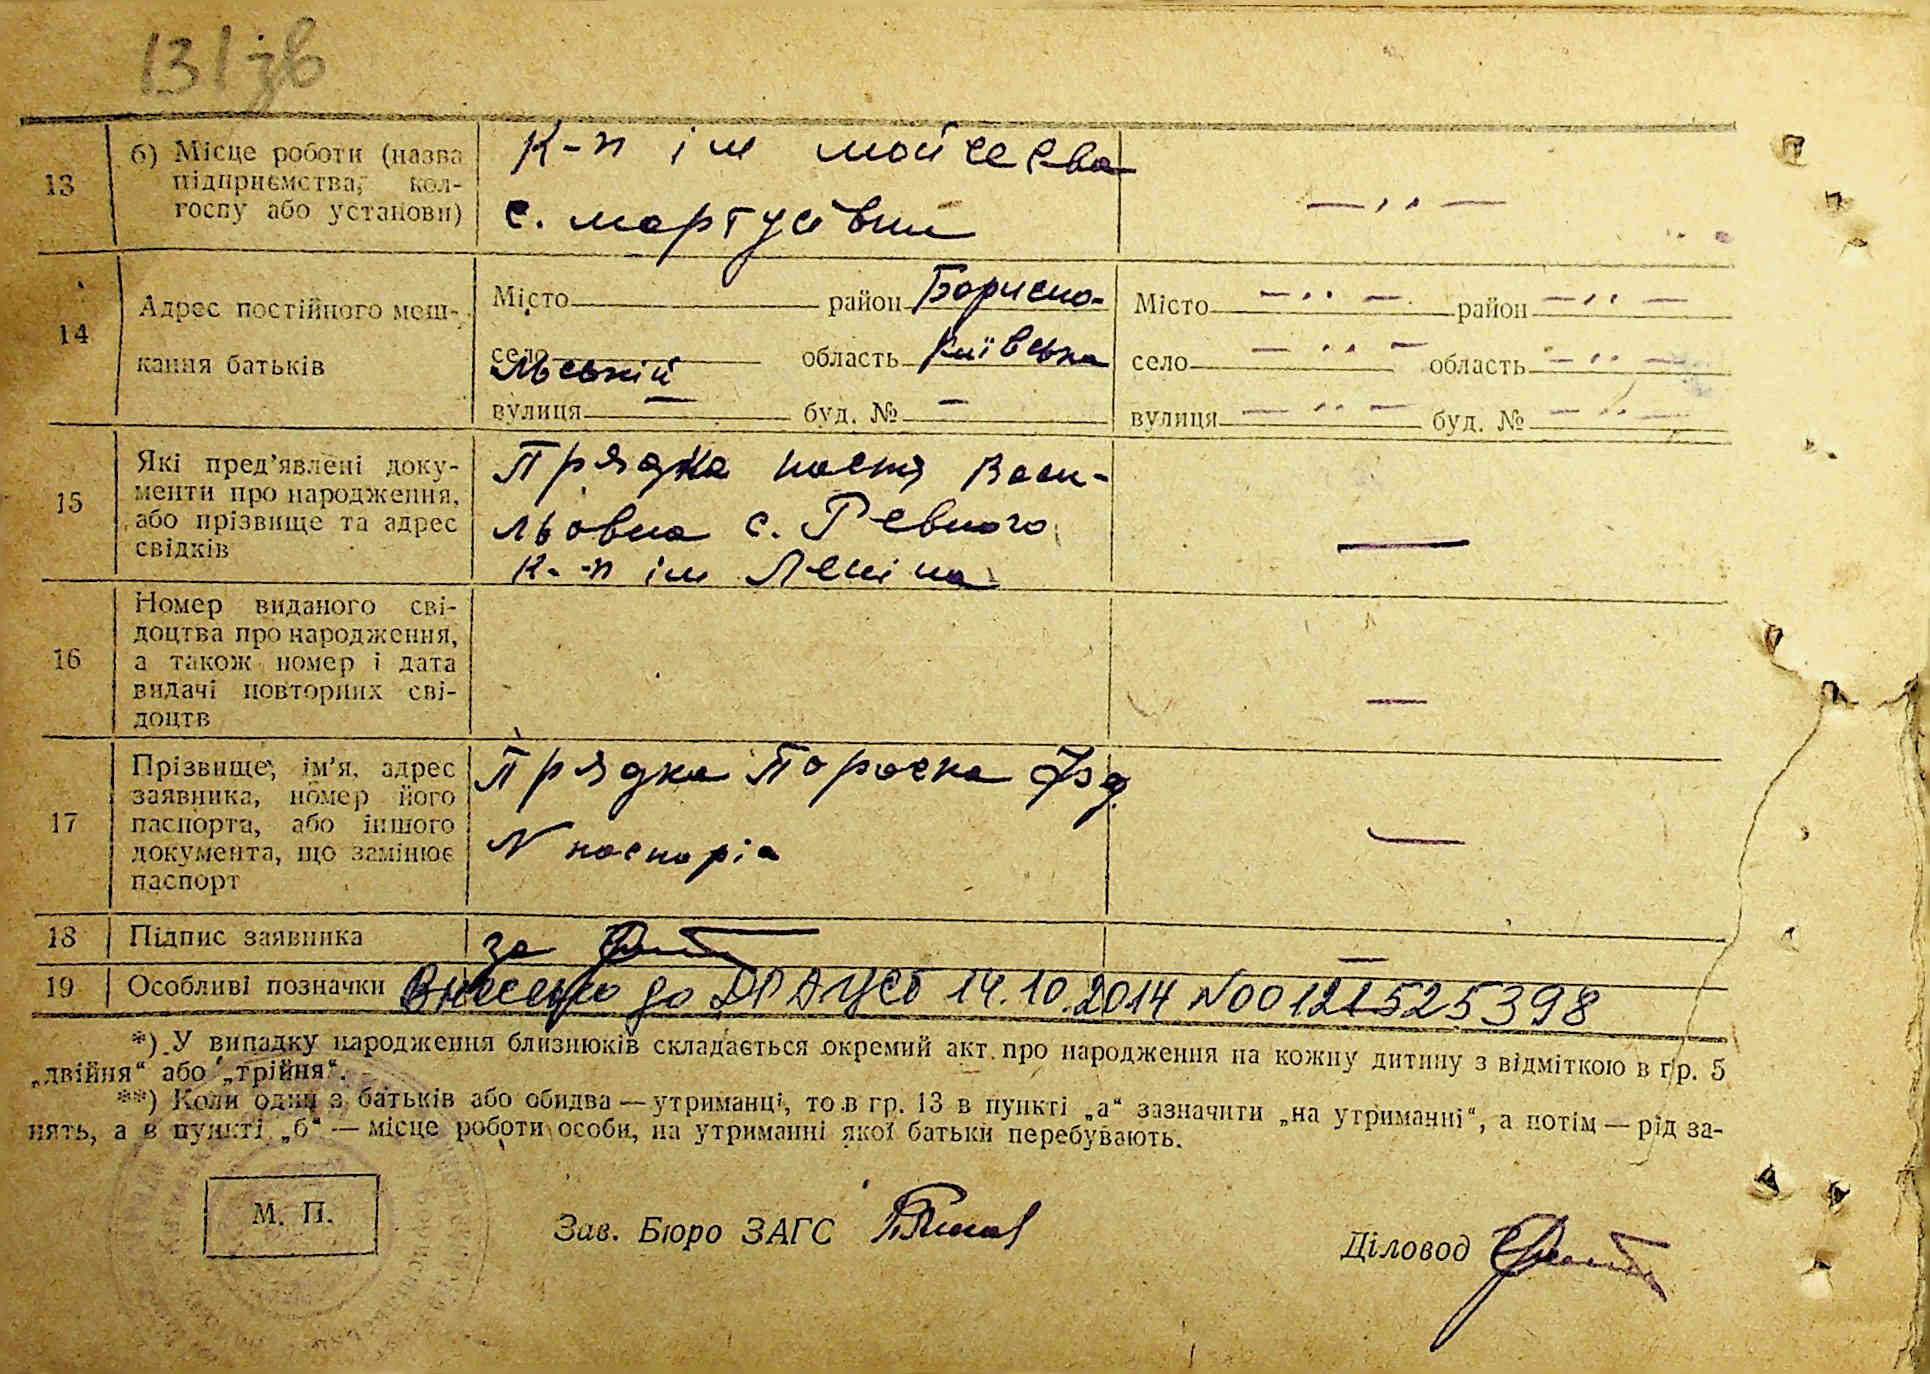 131зв
13
б) Місце роботи (назва
підприємства, кол-
госпу або установи)
К-п ім Мойсеєва
с. Мартусівки
— ,, —
14
Адрес постійного меш-
кання батьків
Місто район Борисπο-
село область Київська
льській
вулиця — буд. № —
Місто — ,, — район — ,, —
село — ,, — область — ,, —
вулиця — ,, — буд. № — ,, —
15
Які пред'явлені доку-
менти про народження,
або прізвище та адрес
свідків
Прядка Настя Васи-
льовна с. Ревного
К-п ім Леніна
—
16
Номер виданого сві-
доцтва про народження,
а також номер і дата
видачі повторних сві-
доцтв
—
17
Прізвище, ім'я, адрес
заявника, номер його
паспорта, або іншого
документа, що замінює
паспорт
Прядка Параска
N паспорта
—
18
Підпис заявника
за
—
19
Особливі позначки Внесено до ДРАЦСГ 14.10.2014 №00121525398
*) У випадку народження близнюків складається окремий акт про народження на кожну дитину з відміткою в гр. 5
„двійня“ або „трійня“.
**) Коли один з батьків або обидва — утриманці, то в гр. 13 в пункті „а“ зазначити „на утриманні“, а потім — рід за-
нять, а в пункті „б“ — місце роботи особи, на утриманні якої батьки перебувають.
М. П.
Зав. Бюро ЗАГС
Діловод